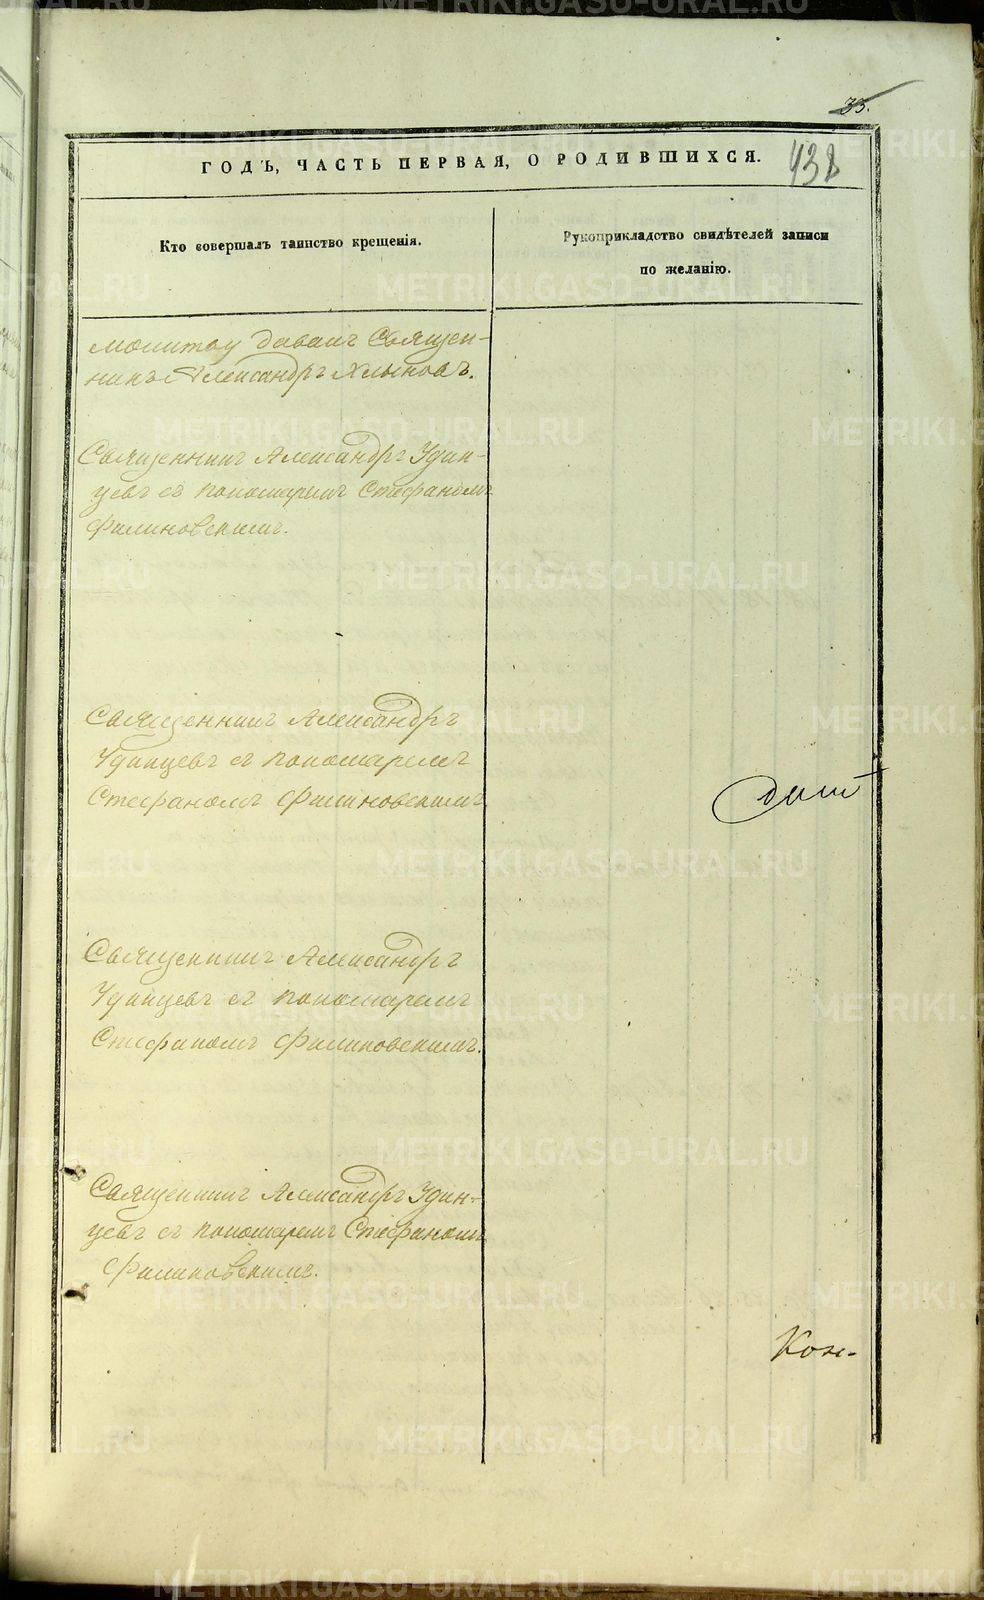 33.
ГОДЪ, ЧАСТЬ ПЕРВАЯ, О РОДИВШИХСЯ.
432
Кто совершалъ таинство крещенія.
Рукоприкладство свидѣтелей записи
по желанію.
молитву давалъ Священ-
никъ Александръ Хлыновъ.
Священникъ Александръ Удин-
цевъ съ пономаремъ Стефаномъ
Филиновскимъ.
Священникъ Александръ
Удинцевъ съ пономаремъ
Стефаномъ Филиновскимъ
Священникъ Александръ
Удинцевъ съ пономаремъ
Стефаномъ Филиновскимъ.
Священникъ Александръ Удин-
цевъ съ пономаремъ Стефаномъ
Филиновскимъ.
METRIKI.GASO-URAL.RU